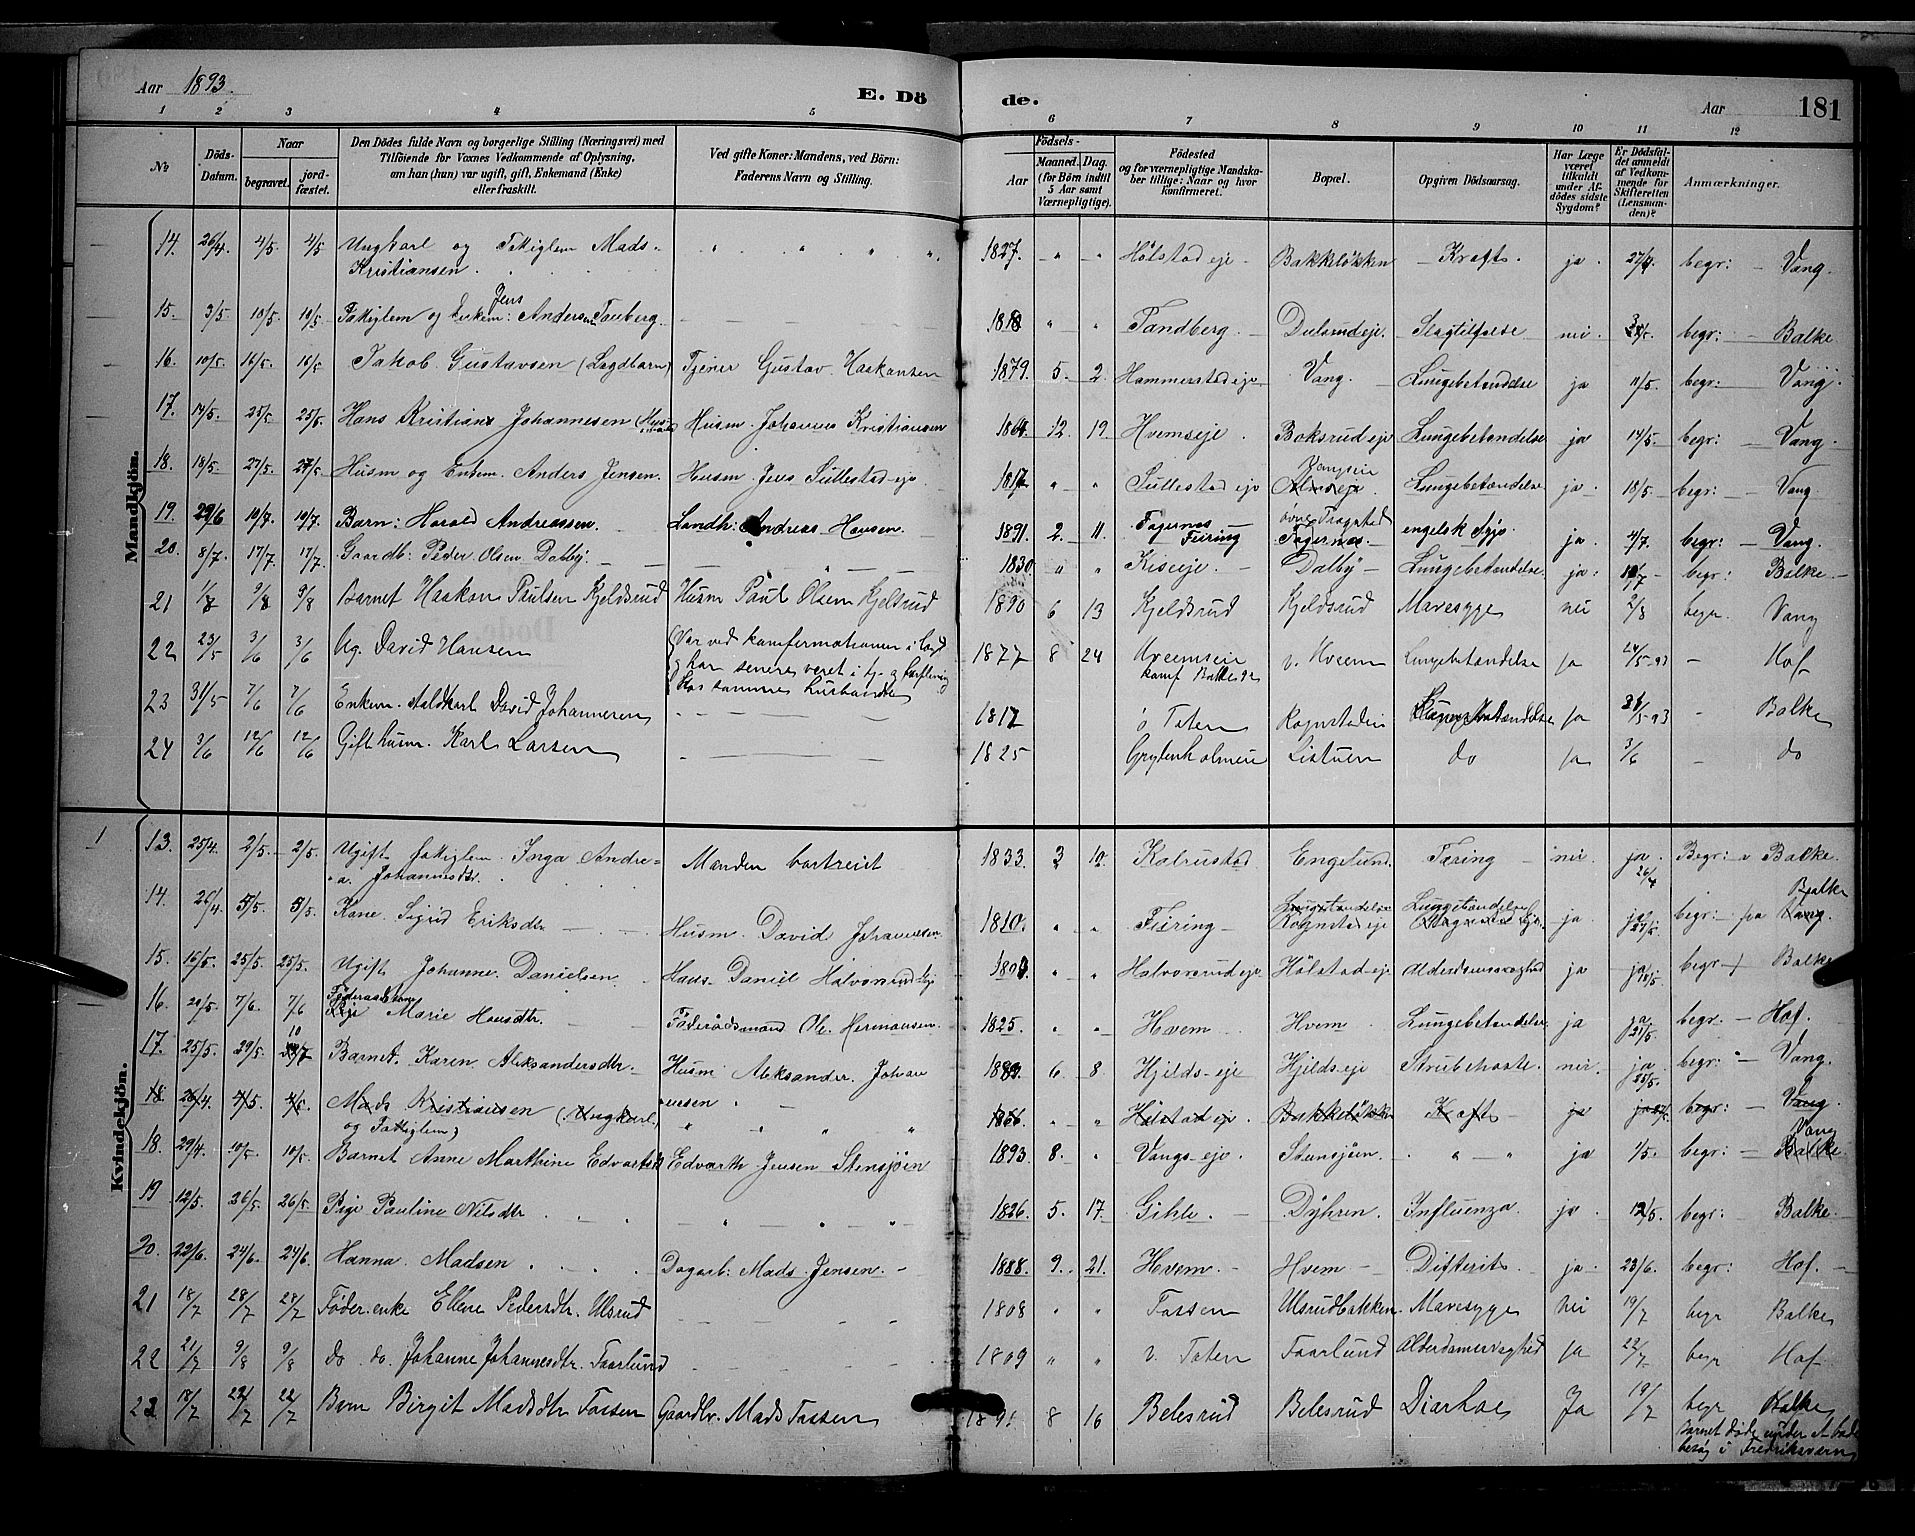 Aar 1893.
E. Döde.
Aar
181
1 2 3 4 5 6 7 8 9 10 11 12
No
Döds-Datum.
Naar
begravet.
jord-fæstet.
Den Dödes fulde Navn og borgerlige Stilling (Næringsvei) med
Tilföiende for Voxnes Vedkommende af Oplysning,
om han (hun) var ugift, gift, Enkemand (Enke)
eller fraskilt.
Ved gifte Koner: Mandens, ved Börn:
Faderens Navn og Stilling.
Födsels-
Aar
Maaned. Dag.
(for Börn indtil
5 Aar samt
Værnepligtige).
Födested
og for værnepligtige Mandska-
ber tillige: Naar og hvor
konfirmeret.
Bopæl.
Opgiven Dödsaarsag.
Har Læge
været
tilkaldt
under Af-
dödes sidste
Sygdom?
Er Dödsfal-
det anmeldt
af Vedkom-
mende for
Skifteretten
(Lensman-
den)?
Anmærkninger.
Mandkjön.
14. 26/4 4/5. 4/5 Ungkarl og Fattiglem Mads Kristiansen. 1827. Hölstadeje Bakkeløkken Kraft ja. 27/4. begr: Vang.
15. 3/5 10/5 10/5 Fattiglem og Enkem: Jens Andersen 1818 Tandberg. Slagtilfælde nei begr: Balke
16. 10/5. 16/5. 16/5 Jakob Gustavsen (Lægdbarn) Tjener Gustav Haakansen 1879. 5. 2. Hammerstadeje Vang. Lungebetændelse ja 11/5. begr: Vang.
17. 14/5. 25/5 25/5 Hans Kristian Johannesen Husm. Johannes Kristiansen 1864. 12. 19. Hvemseje. Boksrudeje Lungebetændelse ja 14/5. begr: Vang.
18. 18/5. 27/5. 27/5 Husm og Enkem. Anders Jensen. Husm. Jens Sullestad-eje 1817 Sullestadeje Vangseie Lungebetændelse ja. 18/5. begr: Vang
19. 29/6 10/7. 10/7. Barn: Harald Andreassen. Landh: Andreas Hansen. 1891. 2. 11. Fagernes Feiring øvre Fagernes engelsk Syge. ja. 4/7. begr: Vang.
20. 8/7. 17/7 17/7. Gaardb: Peder Olsen Dalby. 1830. Kiseje. Dalby Lungebetændelse. ja. begr: Balke.
21 1/8 9/8 9/8 Barnet Haakon Paulsen Kjeldsrud Husm Paul Olsen Kjelsrud 1890 6 13 Kjeldsrud Kjeldsrud Mavesyge nei 2/8 begr. Vang
22 23/5 3/6 3/6 Ug. David Hansen (Var ved konfermationen i Lægd
og har senere været i tj. og
hos samme husbonde 1877 8 24 Hveemseie
konf Balke v. Hveem Lungebetændelse ja 24/5-93 Hof
23 31/5 7/6 7/6 Enkem. David Johannesen 1817 ø Toten Rognstadei ja 31/5-93 Balke
24 3/6 12/6 12/6 Gift husm. Karl Larsen 1825 Listuen do ja 3/6 do
Kvindekjön.
1
13. 25/4. 2/5. 2/5. Ugift fattiglem. Inga Andrea Johannesdtr. Manden bortreist 1833 3 10. Kolrustad Engelund. Tæring nei ja 26/4 Begr: v Balke.
14. 26/4. 5/5. 5/5. Kone. Sigrid Eriksdtr Husm. David Johannesen 1810. Feiring Rognstadeje Lungebetændelse ja begr: fra Vang. Balke
15. 16/5. 25/5. 25/5. Ugift Johanne Danielsen. Hans Daniel Halvorsrud-eje Halvorsrudeje Hölstadeje Alderdomssvaghed ja ja begr Balke
16. 29/5. 7/6. 7/6 Føderaadskone Marie Hansdtr. Føderådsmand Ole Hermansen. 1825. Hvem Hvem Lungebetændelse. ja ja begr: Hof.
17. 25/5. 29/5. Barnet. Karen Aleksandersdtr. Husm Aleksander Johannesen 1889. 6. 8. Hjelds-eje Hjeldseje Strubehoste. nei. ja 25/5. begr: Vang.
18 26/4 4/5. 4/5 Mads Kristiansen (Ungkarl
og Fattiglem) 1866. Hölstad eje. Bakkeløkken Kraft ja begr: Vang
18. 29/4. 10/5. 10/5. Barnet Anne Marthine Edvartsdtr Edvarth Jensen Stensjøen 1893. 8. Vangs-eje. Stensjøen. ja 1/5. begr: Balke. Vang
19 12/5. 26/5. 26/5. Pige Pauline Nilsdtr 1826. 5. 17. Gihle. Dyhren. Influenza. ja 12/5. begr: Balke
20. 22/6. 24/6. 24/6. Hanna Madsen Dagarb: Mads Jensen. 1888. 9. 21. Hvem. Hvem Difterit. ja 23/6. begr: Hof.
21 18/7 28/7 28/7 Føder. enke Ellene Pedersdtr. Ulsrud 1808 Tossen Ulsrudbakken Mavesyge nei 19/7 begr Balke
22 21/7 9/8 9/8 do do. Johanne Johannesdtr. Faarlund 1809 v. Toten Faarlund Alderdomsvaghed ja 22/7 begr Hof
23 18/7 22/7 22/7 Barn Birgit Madsdtr Tossen Gaardbr. Mads Tossen 1891 8 16 Belesrud Belesrud Diarhoe Ja 19/7 begr Balke
Barnet døde under et bade
besøg i Fredriksværn